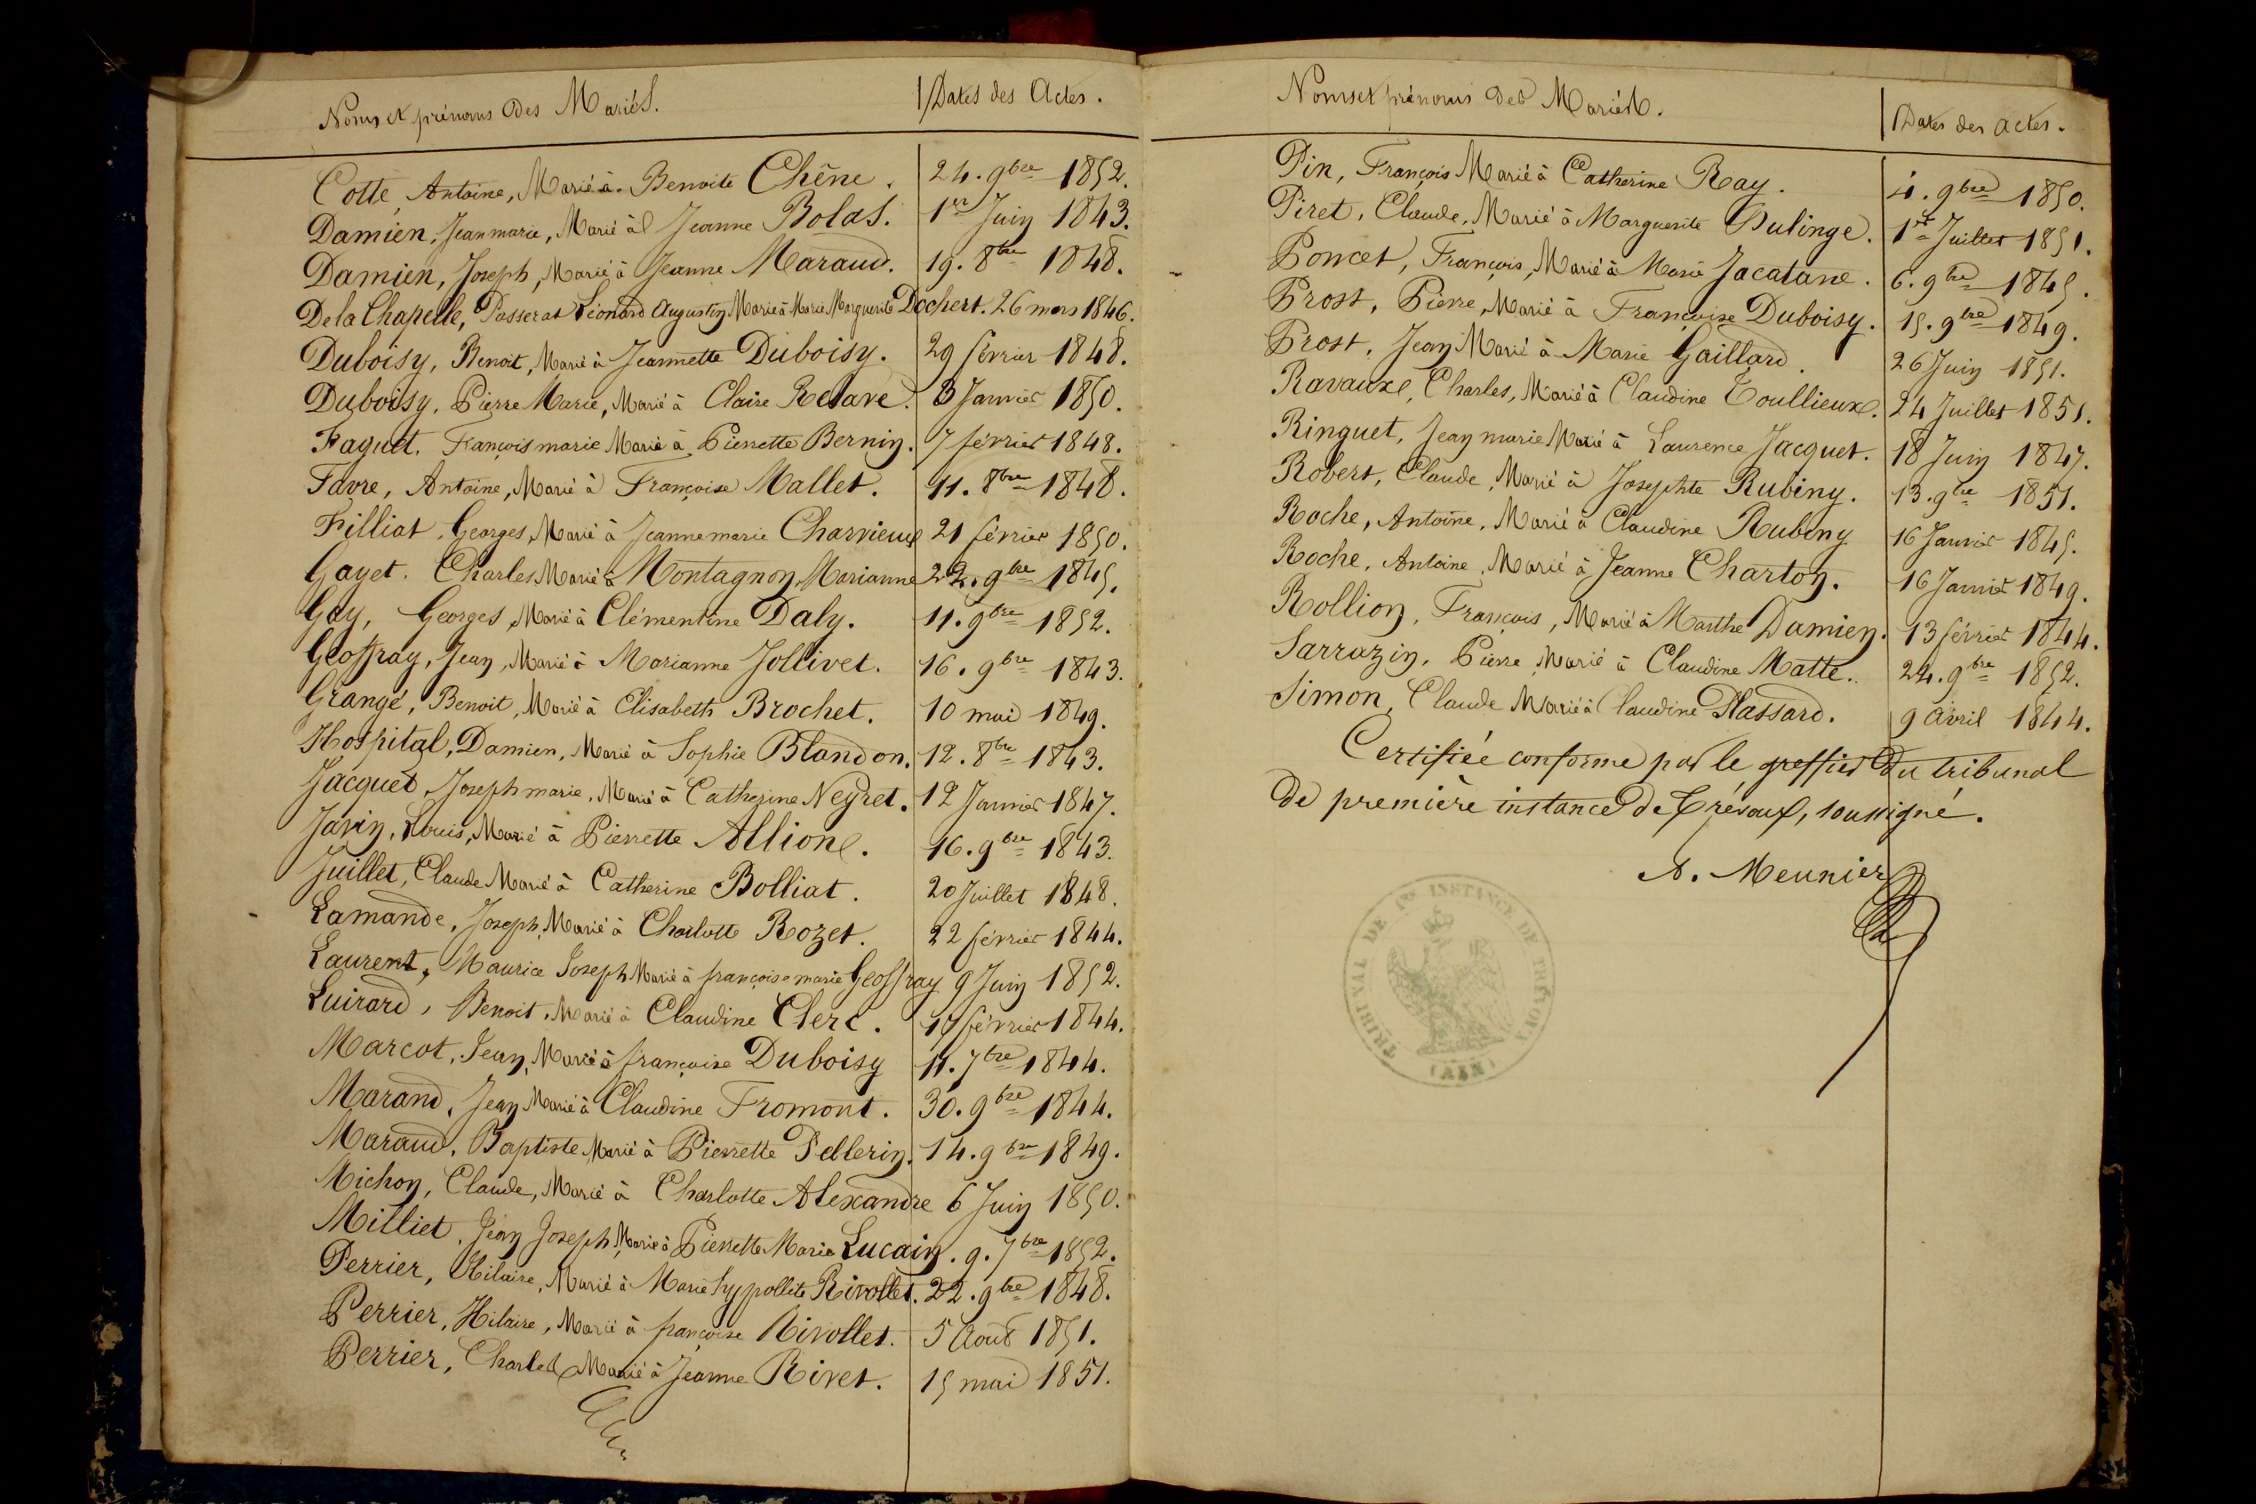 Noms et prénoms des Mariés. Dates des Actes.
Cotte, Antoine, Marié à Benoite Chêne. 24. 9bre 1852.
Damien, Jean marie, Marié à Jeanne Bolas. 1er Juin 1843.
Damien, Joseph, Marié à Jeanne Maraud. 19. 8bre 1848.
De la Chapelle, Passerat Léonard Augustin Marié à Marie Marguerite Dochert. 26 mars 1846.
Duboisy, Benoit, Marié à Jeannette Duboisy. 29 février 1848.
Duboisy, Pierre Marie, Marié à Claire Relave. 8 Janvier 1850.
Faguet, François marie Marié à Pierrette Bernin. 7 février 1848.
Favre, Antoine, Marié à Françoise Mallet. 11. 8bre 1848.
Filliat, Georges, Marié à Jeanne marie Charvieux 21 février 1850.
Gayet. Charles Marié à Montagnon, Marianne 22. 9bre 1845.
Gay, Georges, Marié à Clémentine Daly. 11. 9bre 1852.
Geoffray, Jean, Marié à Marianne Jollivet. 16. 9bre 1843.
Grangé, Benoit, Marié à Elisabeth Brochet. 10 mai 1849.
Hospital, Damien, Marié à Sophie Blandon. 12. 8bre 1843.
Jacquet, Joseph marie, Marié à Catherine Neyret. 12 Janvier 1847.
Javin, Louis, Marié à Pierrette Allion. 16. 9bre 1843.
Juillet, Claude Marié à Catherine Bolliat. 20 Juillet 1848.
Lamande, Joseph, Marié à Charlotte Rozet. 22 février 1844.
Laurent, Maurice Joseph Marié à françoise marie Geoffray 9 Juin 1852.
Luirard, Benoit, Marié à Claudine Clerc. 17 février 1844.
Marcot, Jean, Marié à françoise Duboisy 11. 7bre 1844.
Marand, Jean Marié à Claudine Fromont. 30. 9bre 1844.
Maraud, Baptiste Marié à Pierrette Pellerin. 14. 9bre 1849.
Michon, Claude, Marié à Charlotte Alexandre 6 Juin 1850.
Milliet, Jean Joseph Marié à Pierrette Marie Lucain. 9. 7bre 1852.
Perrier, Hilaire, Marié à Marie hyppollite Rivollet. 22. 9bre 1848.
Perrier, Hilaire, Marié à françoise Rivollet. 5 Août 1851.
Perrier, Charles Marié à Jeanne Rivet. 15 mai 1851.
Noms et prénoms des Mariés. Dates des actes.
Pin, François Marié à Catherine Ray. 4. 9bre 1850.
Piret, Claude, Marié à Marguerite Dulinge. 1er Juillet 1851.
Poncet, François, Marié à Marie Jacatane. 6. 9bre 1845.
Prost, Pierre, Marié à Françoise Duboisy. 15. 9bre 1849.
Prost, Jean Marié à Marie Gaillard. 26 Juin 1851.
Ravaux, Charles, Marié à Claudine Toullieux. 24 Juillet 1851.
Ringuet, Jean marie Marié à Laurence Jacquet. 18 Juin 1847.
Robert, Claude, Marié à Josephte Rubiny. 13. 9bre 1851.
Roche, Antoine, Marié à Claudine Rubiny 16 Janvier 1845.
Roche, Antoine, Marié à Jeanne Charton. 16 Janvier 1849.
Rollion, François, Marié à Marthe Damien. 13 février 1844.
Sarrazin, Pierre Marié à Claudine Matte. 24. 9bre 1852.
Simon, Claude Marié à Claudine Plassard. 9 avril 1844.
Certifiée conforme par le greffier du tribunal
de première instance de Trévoux, soussigné.
A. Meunier
TRIBUNAL DE 1RE INSTANCE DE TRÉVOUX
(AIN)